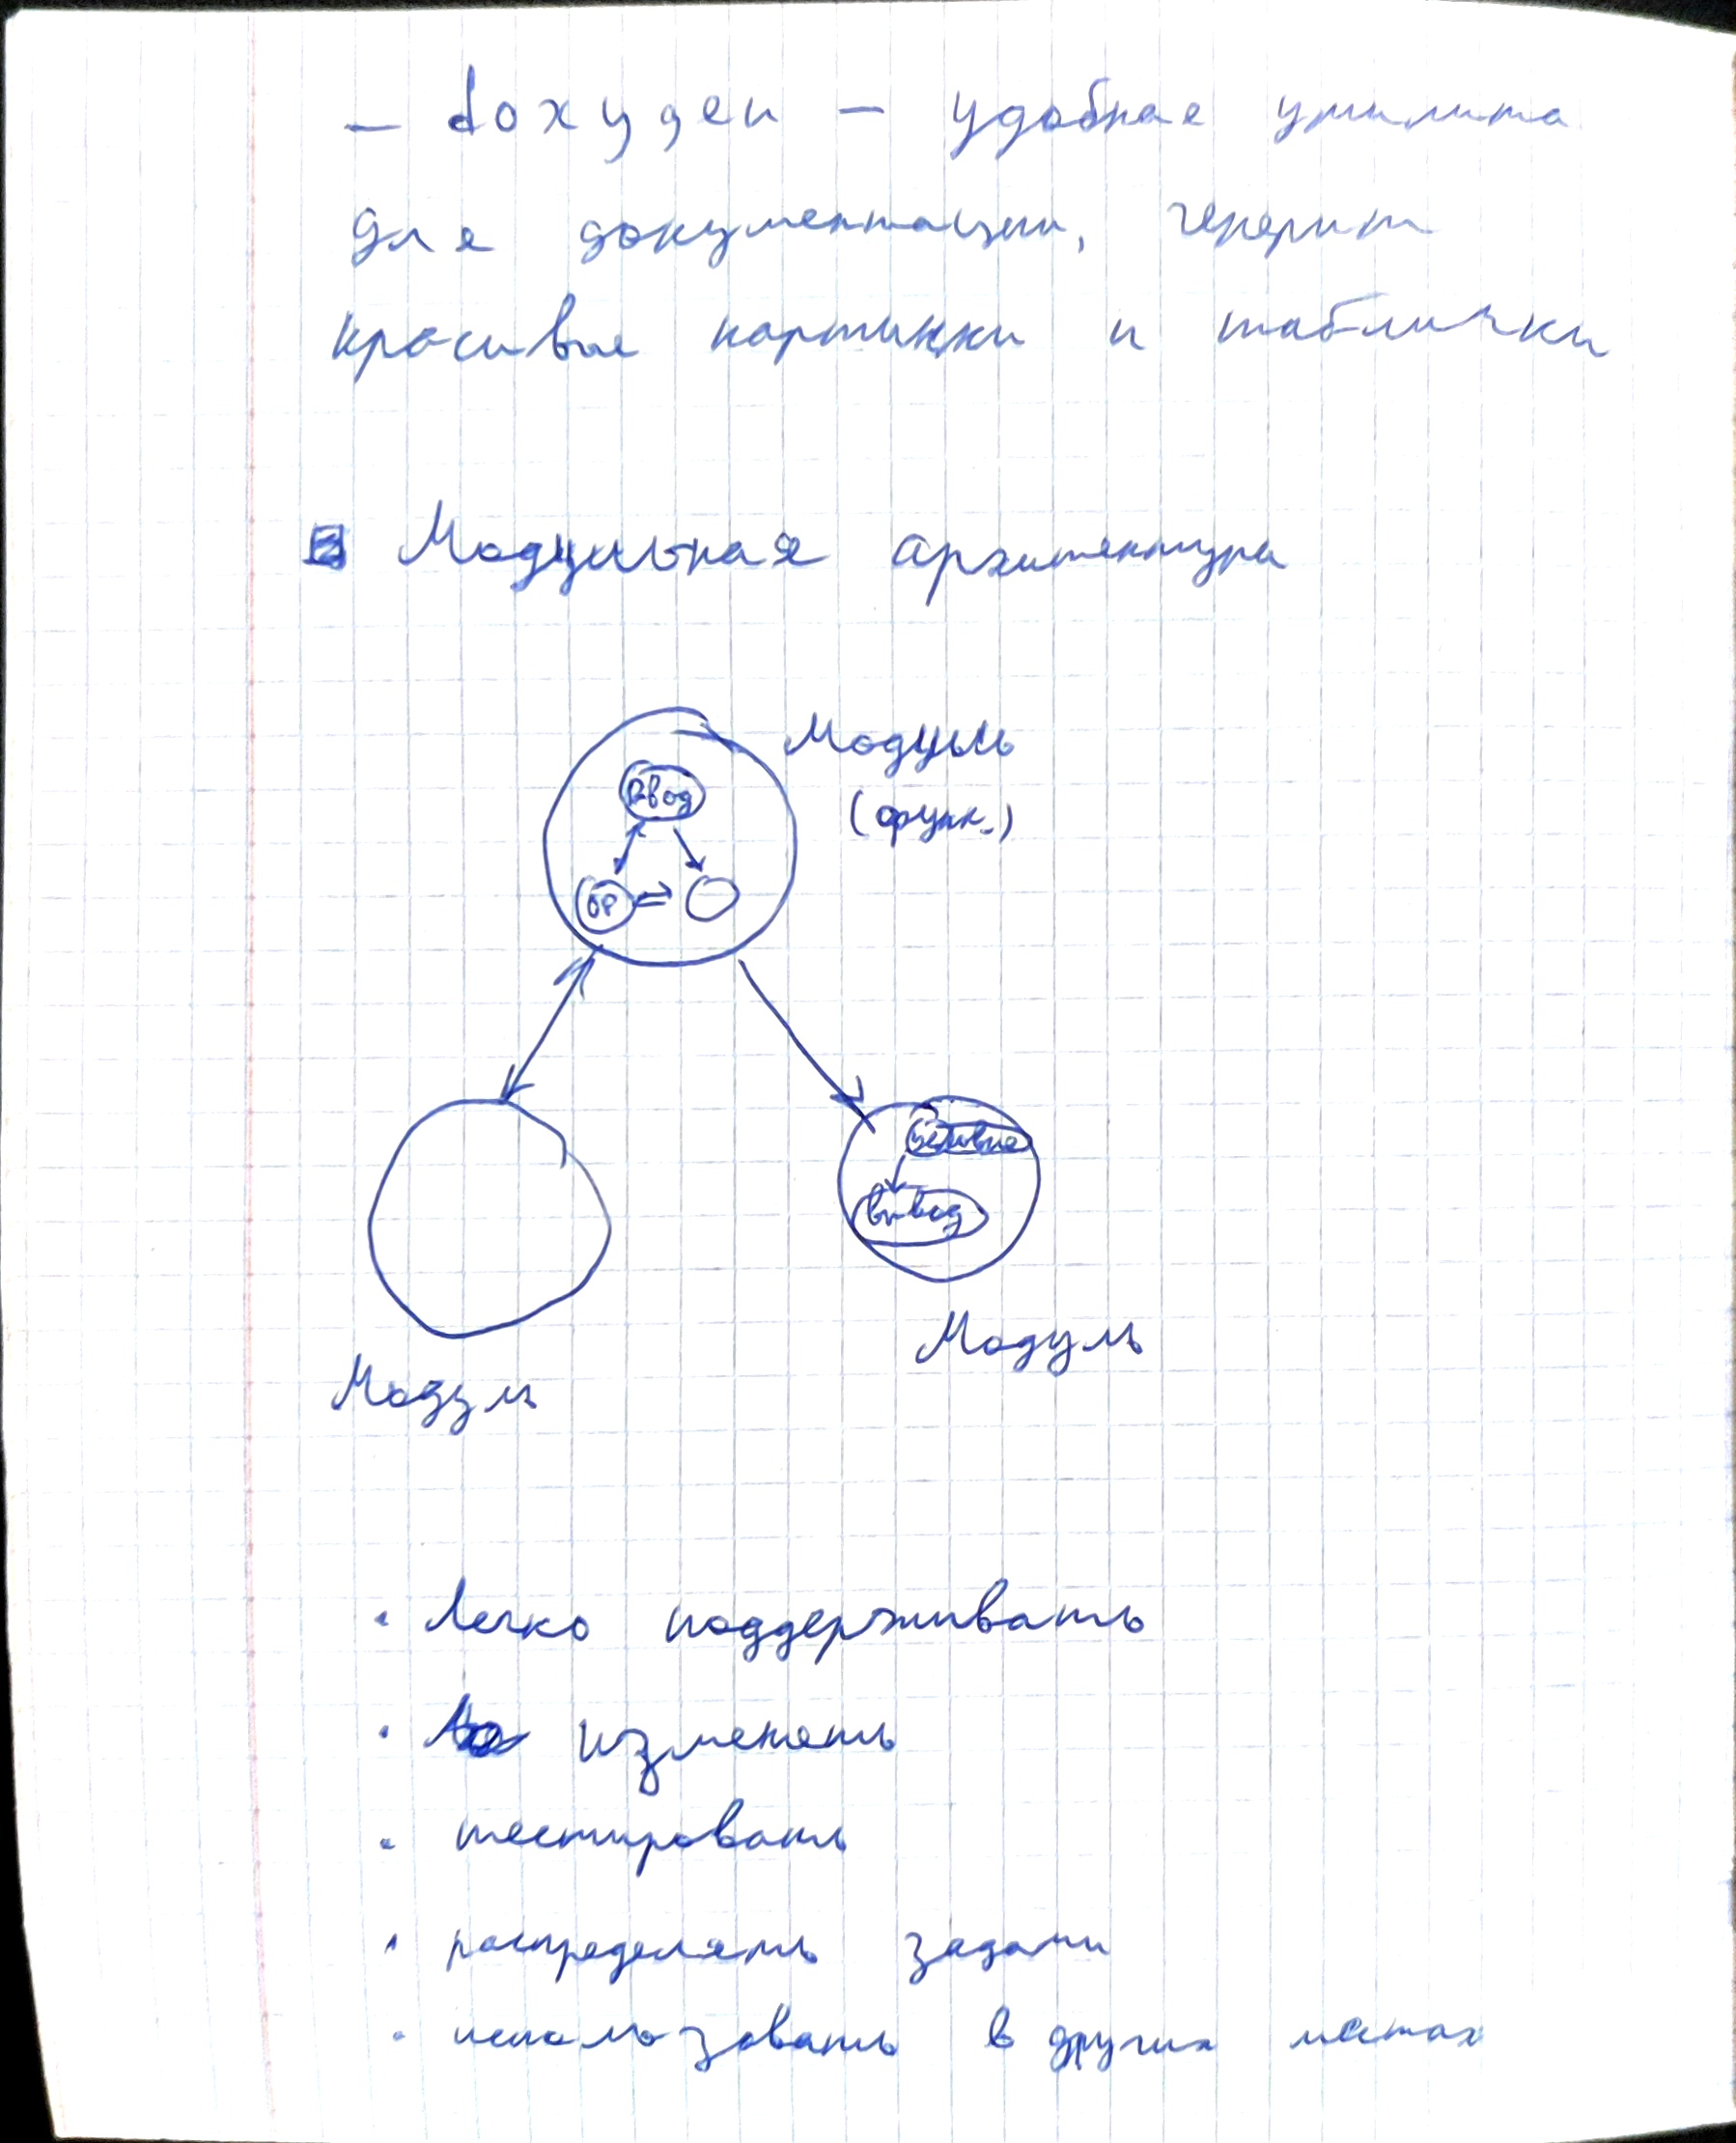 – doxyден – удобная утилита
для документации, генерит
красивые картинки и таблички
Модульная архитектура
Модуль
(функ.)
Ввод
ОР
вывод
Модуль
Модуль
· легко поддерживать
· изменять
· тестировать
· распределять задачи
· использовать в других местах